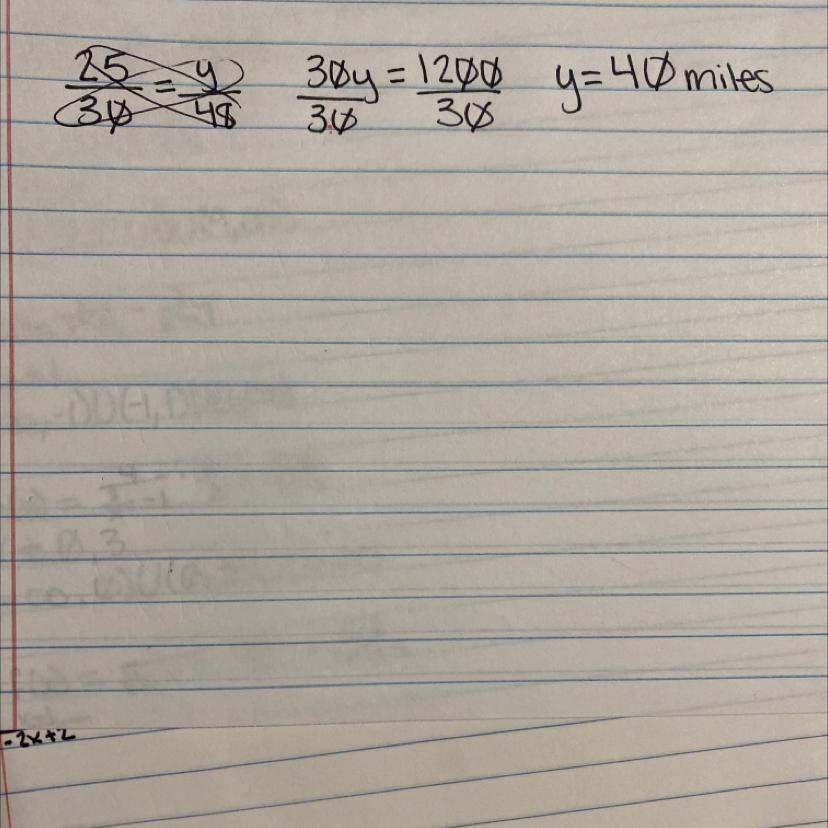 25/30 = y/48 30y/30 = 1200/30 y = 40 miles
-2x+2